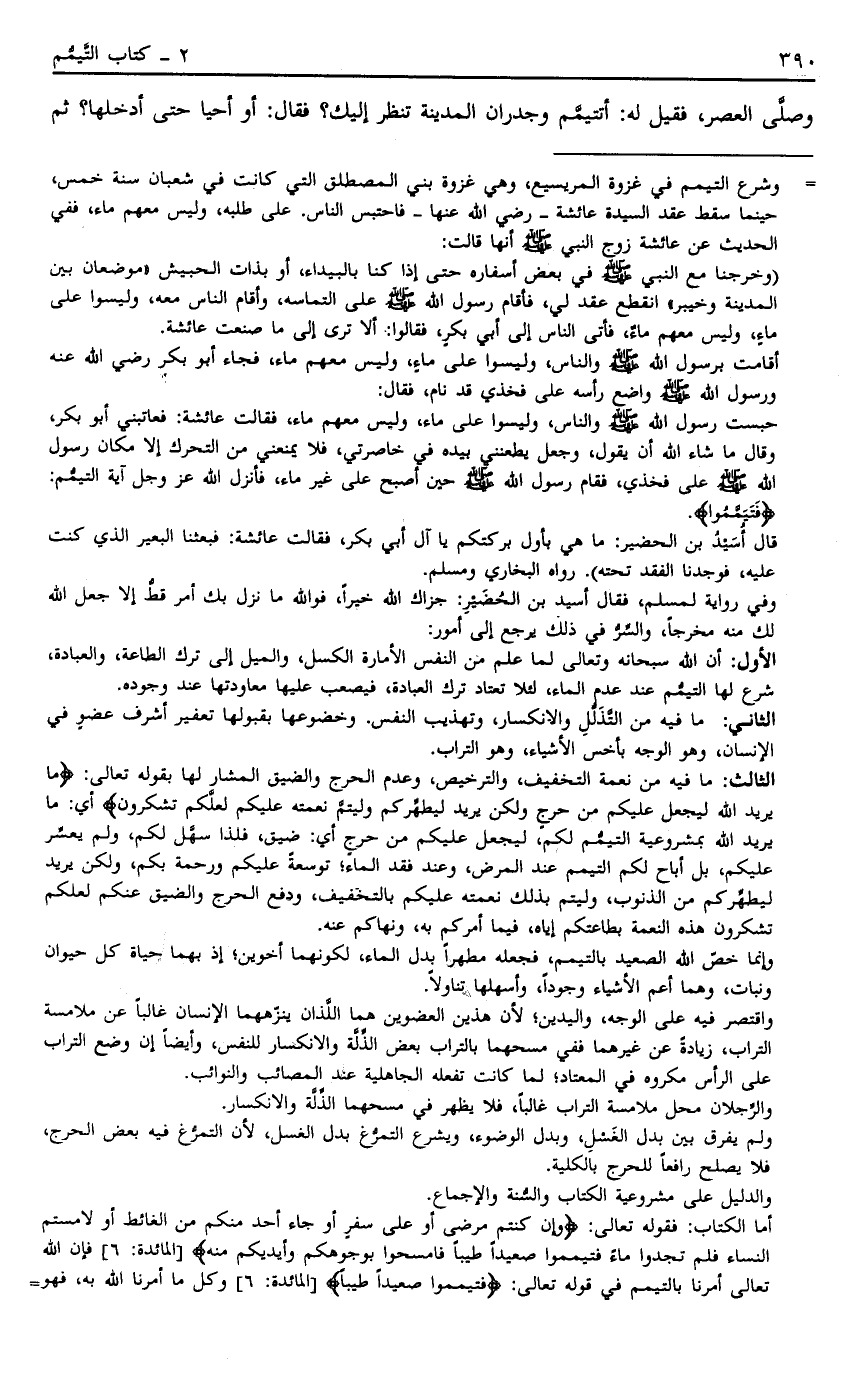 ٣٩٠ ٢ ـ كتاب التَّيمُّم
وصلَّى العصر، فقيل له: أتتيمَّم وجدران المدينة تنظر إليك؟ فقال: أو أحيا حتى أدخلها؟ ثم
= وشرع التيمم في غزوة المريسيع، وهي غزوة بني المصطلق التي كانت في شعبان سنة خمس،
حينما سقط عقد السيدة عائشة ـ رضي الله عنها ـ فاحتبس الناس. على طلبه، وليس معهم ماء، ففي
الحديث عن عائشة زوج النبي ﷺ أنها قالت:
(وخرجنا مع النبي ﷺ في بعض أسفاره حتى إذا كنا بالبيداء، أو بذات الحبيش «موضعان بين
المدينة وخيبر» انقطع عقد لي، فأقام رسول الله ﷺ على التماسه، وأقام الناس معه، وليسوا على
ماءٍ، وليس معهم ماءً، فأتى الناس إلى أبي بكرٍ، فقالوا: ألا ترى إلى ما صنعت عائشة.
أقامت برسول الله ﷺ والناس، وليسوا على ماءٍ، وليس معهم ماء، فجاء أبو بكرٍ رضي الله عنه
ورسول الله ﷺ واضع رأسه على فخذي قد نام، فقال:
حبست رسول الله ﷺ والناس، وليسوا على ماء، وليس معهم ماء، فقالت عائشة: فعاتبني أبو بكر،
وقال ما شاء الله أن يقول، وجعل يطعنني بيده في خاصرتي، فلا يمنعني من التحرك إلا مكان رسول
الله ﷺ على فخذي، فقام رسول الله ﷺ حين أصبح على غير ماء، فأنزل الله عز وجل آية التيمُّم:
﴿فَتَيَمَّمُوا﴾.
قال أُسَيْدُ بن الحضير: ما هي بأول بركتكم يا آل أبي بكر، فقالت عائشة: فبعثنا البعير الذي كنت
عليه، فوجدنا الفقد تحته). رواه البخاري ومسلم.
وفي رواية لمسلم، فقال أسيد بن الحُضَيْرِ: جزاك الله خيراً، فوالله ما نزل بك أمر قطُّ إلا جعل الله
لك منه مخرجاً، والسِّرُّ في ذلك يرجع إلى أمور:
الأول: أن الله سبحانه وتعالى لما علم من النفس الأمارة الكسل، والميل إلى ترك الطاعة، والعبادة،
شرع لها التيمُّم عند عدم الماء، لئلا تعتاد ترك العبادة، فيصعب عليها معاودتها عند وجوده.
الثاني: ما فيه من التَّذَلُّلِ والانكسار، وتهذيب النفس. وخضوعها بقبولها تعفير أشرف عضوٍ في
الإنسان، وهو الوجه بأخس الأشياء، وهو التراب.
الثالث: ما فيه من نعمة التخفيف، والترخيص، وعدم الحرج والضيق المشار لها بقوله تعالى: ﴿ما
يريد الله ليجعل عليكم من حرجٍ ولكن يريد ليطهِّركم وليتمَّ نعمته عليكم لعلَّكم تشكرون﴾ أي: ما
يريد الله بمشروعية التيمُّم لكم، ليجعل عليكم من حرجٍ أي: ضيق، فلذا سهَّل لكم، ولم يعسِّر
عليكم، بل أباح لكم التيمم عند المرض، وعند فقد الماء؛ توسعةً عليكم ورحمة بكم، ولكن يريد
ليطهِّركم من الذنوب، وليتم بذلك نعمته عليكم بالتخفيف، ودفع الحرج والضيق عنكم لعلكم
تشكرون هذه النعمة بطاعتكم إياه، فيما أمركم به، ونهاكم عنه.
وإنما خصّ الله الصعيد بالتيمم، فجعله مطهراً بدل الماء، لكونهما أخوين؛ إذ بهما حياة كل حيوان
ونبات، وهما أعم الأشياء وجوداً، وأسهلها تناولاً.
واقتصر فيه على الوجه، واليدين؛ لأن هذين العضوين هما اللَّذان ينزّههما الإنسان غالباً عن ملامسة
التراب، زيادةً عن غيرهما ففي مسحهما بالتراب بعض الذِّلَّة والانكسار للنفس، وأيضاً إن وضع التراب
على الرأس مكروه في المعتاد؛ لما كانت تفعله الجاهلية عند المصائب والنوائب.
والرِّجلان محل ملامسة التراب غالباً، فلا يظهر في مسحهما الذِّلَّة والانكسار.
ولم يفرق بين بدل الغَسْلِ، وبدل الوضوء، ويشرع التمرُّغ بدل الغسل، لأن التمرُّغ فيه بعض الحرج،
فلا يصلح رافعاً للحرج بالكلية.
والدليل على مشروعية الكتاب والسُّنة والإجماع.
أما الكتاب: فقوله تعالى: ﴿وإن كنتم مرضى أو على سفرٍ أو جاء أحد منكم من الغائط أو لامستم
النساء فلم تجدوا ماءً فتيمموا صعيداً طيباً فامسحوا بوجوهكم وأيديكم منه﴾ [المائدة: ٦] فإن الله
تعالى أمرنا بالتيمم في قوله تعالى: ﴿فتيمموا صعيداً طيباً﴾ [المائدة: ٦] وكل ما أمرنا الله به، فهو =